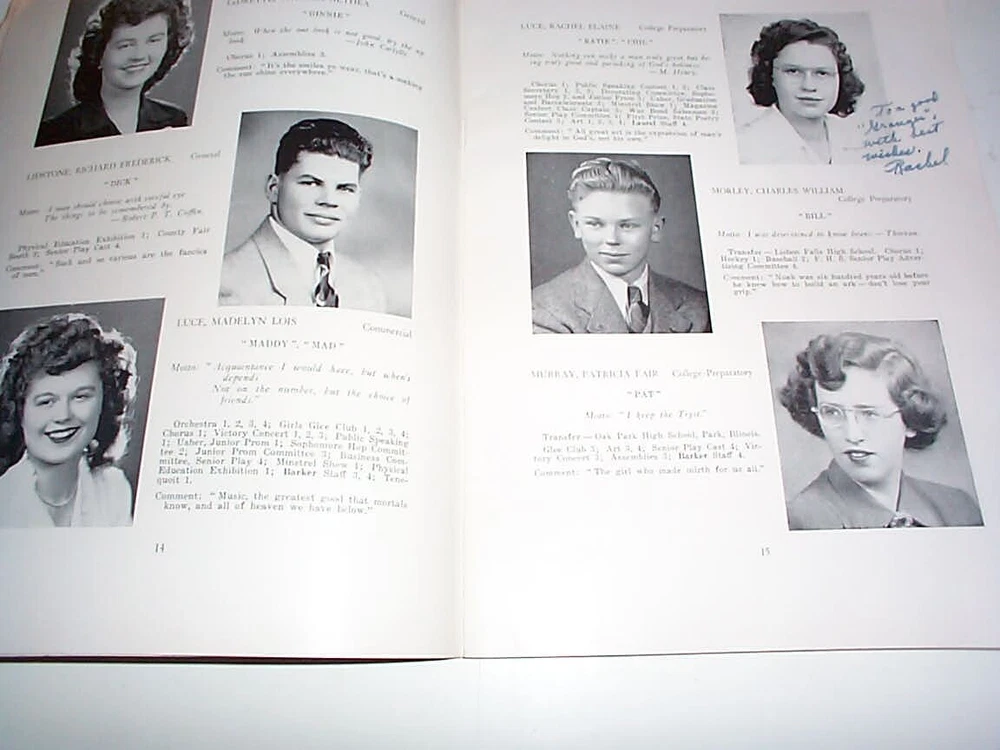 General
"GINNIE"
Motto: When the out look is not good, try the up
look. — John Carlyle
Chorus 1; Assemblies 3.
Comment: "It's the smiles you wear, that's a-making
the sun shine everywhere."
LIDSTONE, RICHARD FREDERICK General
"DICK"
Motto: A man should choose with careful eye
The things to be remembered by.
— Robert P. T. Coffin.
Physical Education Exhibition 1; County Fair
Booth 2; Senior Play Cast 4.
Comment: "Such and so various are the fancies
of men."
LUCE, MADELYN LOIS Commercial
"MADDY", "MAD"
Motto: "Acquaintance I would have, but when't
depends
Not on the number, but the choice of
friends."
Orchestra 1, 2, 3, 4; Girls Glee Club 1, 2, 3, 4;
Chorus 1; Victory Concert 1, 2, 3; Public Speaking
1; Usher, Junior Prom 1; Sophomore Hop Commit-
tee 2; Junior Prom Committee 3; Business Com-
mittee, Senior Play 4; Minstrel Show 1; Physical
Education Exhibition 1; Barker Staff 3, 4; Tene-
quoit 1.
Comment: "Music, the greatest good that mortals
know, and all of heaven we have below."
14
LUCE, RACHEL ELAINE College Preparatory
"KATIE",
Motto: Nothing can make a man truly great but be-
ing truly good and partaking of God's holiness.
— M. Henry.
Chorus 1; Public Speaking Contest 1, 2; Class
Secretary 1, 2, 3; Decorating Committee, Sopho-
more Hop 2, and Junior Prom 3; Usher, Graduation
and Baccalaureate 3; Minstrel Show 1; Magazine
Contest Class Captain 2; War Bond Salesman 3;
Senior Play Committee 4; First Prize, State Poetry
Contest 3; Art 1, 2, 3, 4; Laurel Staff 4.
Comment: "All great art is the expression of man's
delight in God's, not his own."
To a good
"Granger",
with best
wishes.
Rachel
MORLEY, CHARLES WILLIAM
College Preparatory
"BILL"
Motto: I was determined to know beans. — Thoreau.
Transfer — Lisbon Falls High School, Chorus 1;
Hockey 1; Baseball 2; F. H. S. Senior Play Adver-
tising Committee 4.
Comment: "Noah was six hundred years old before
he knew how to build an ark — don't lose your
grip."
MURRAY, PATRICIA FAIR College-Preparatory
"PAT"
Motto: "I keep the Tryst."
Transfer — Oak Park High School, Park, Illinois.
Glee Club 3; Art 3, 4; Senior Play Cast 4; Vic-
tory Concert 3; Assemblies 3; Barker Staff 4.
Comment: "The girl who made mirth for us all."
15